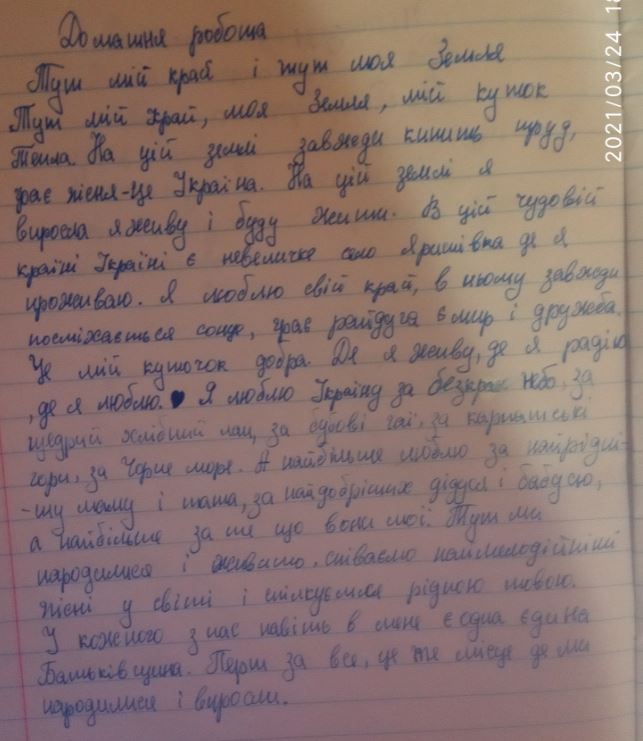 Домашня робота
Тут мій край і тут моя Земля
Тут мій край, моя Земля, мій куток
тепла. На цій землі завжди кипить труд,
грає пісня-Це Україна. На цій землі я
виросла я живу і буду жити. В цій чудовій
країні Україні є невеличке село Яришівка де я
проживаю. Я люблю свій край, в ньому завжди
посміхається сонце, грає райдуга є мир і дружба.
Це мій куточок добра. Де я живу, де я радію
, де я люблю. Я люблю Україну за безкрає небо, за
щедрий хлібний лан, за букові гаї, за карпатські
гори, за Чорне море. А найбільше люблю за найрідні-
-шу маму і тата, за найдобріших дідуся і бабусю,
а найбільше за те що вони мої. Тут ми
народилися і живемо, співаємо наймелодійніші
пісні у світі і спілкуємося рідною мовою.
У кожного з нас навіть в мене є одна єдина
Батьківщина. Перш за все, це те місце де ми
народилися і виросли.
2021/03/24 18